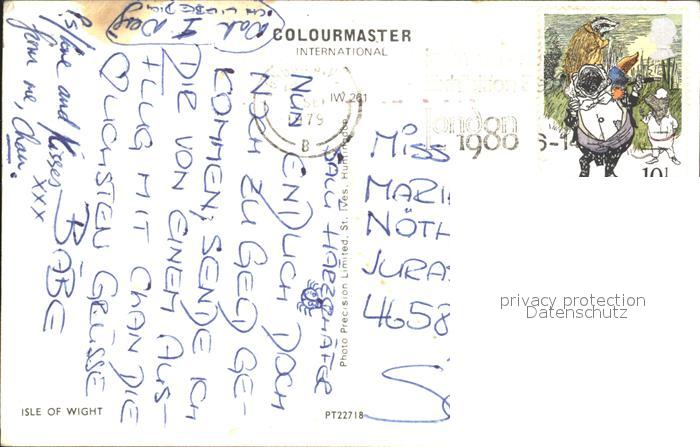 COLOURMASTER
INTERNATIONAL
IW 261
1979
B
London
1980
10½
SALÜ HÄRZCHÄFER
NUN ENDLICH DOCH
NOCH ZU GELD GE-
KOMMEN, SENDE ICH
DIR VON EINEM AUS-
FLUG MIT CHAN DIE
♡LICHSTEN GRÜSSE
BÄBE
P.S. love and Kisses
from me, Chan. xxx
ICH LIEBE DICH
Photo Precision Limited, St. Ives, Huntingdon
MISS
NÖTH
4658
privacy protection
Datenschutz
ISLE OF WIGHT
PT22718